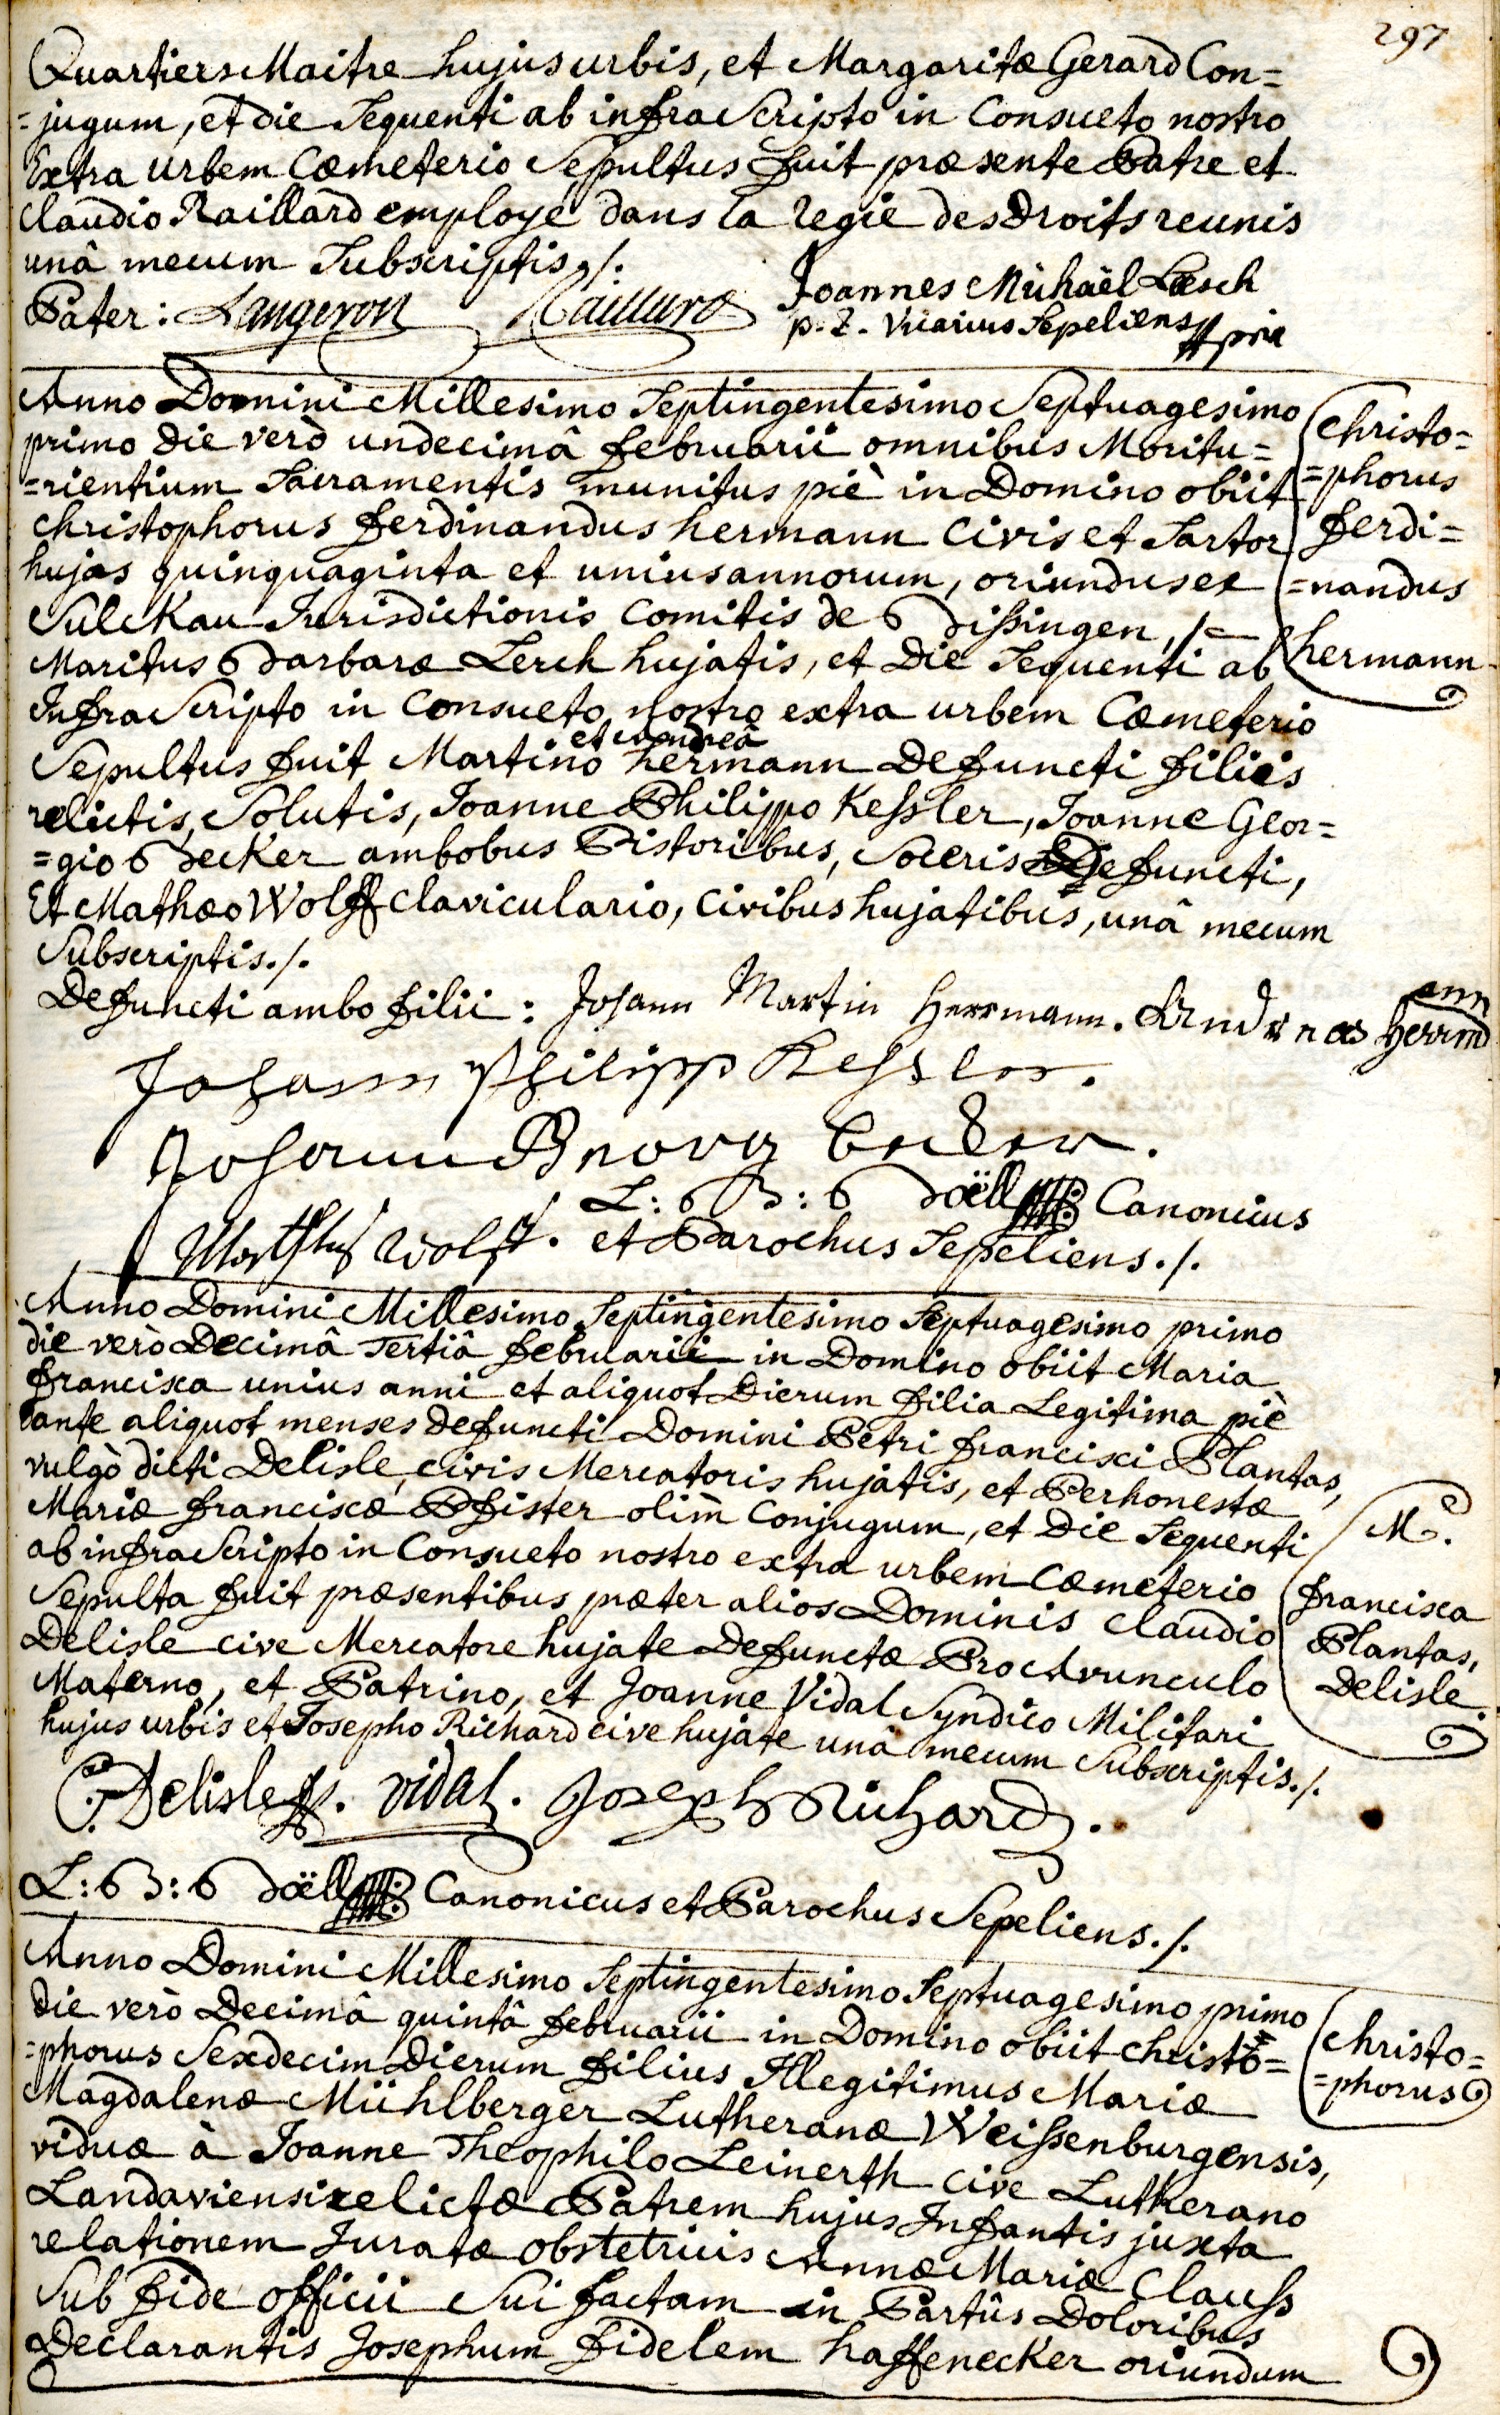 297
Quartiers Maitre hujus urbis, et Margaritæ Gerard Con=
=jugum, et die Sequenti ab infra Scripto in Consueto nostro
Extra urbem Cœmeterio Sepultus fuit præsente Patre et
Claudio Raillard employé dans la regie des Droits reunis
unâ mecum Subscriptis ./.
Pater: Langeron Raillard Joannes Michaël Lœsch
p. t. Vicarius Sepeliens
Anno Domini Millesimo Septingentesimo Septuagesimo
primo die verò undecimâ februarii omnibus Moritu=
=rientium Sacramentis munitus piè in Domino obiit
Christophorus ferdinandus hermann Civis et Sartor
hujas quinquaginta et unius annorum, oriundus ex
Sulckau Jurisdictionis Comitis de Bissingen, /.
Maritus Barbaræ Lerch hujatis, et Die Sequenti ab
Infra Scripto in Consueto nostro extra urbem Cœmeterio
et Andreâ
Sepultus fuit Martino hermann Defuncti filiis
relictis, Solutis, Joanne Philippo Kessler, Joanne Geor=
=gio Becker ambobus Pistoribus, Soceris Defuncti,
Et Mathæo Wolff Claviculario, Civibus hujatibus, unâ mecum
Subscriptis ./.
Christo=
=phorus
ferdi=
=nandus
hermann
Defuncti ambo filii: Johann Martin Herrmann. Andreas Herrm
ann
Johann Philipp Kessler.
Johann Georg Becker.
L: B: Boëll Canonicus
Matthis Wolff. et Parochus Sepeliens ./.
Anno Domini Millesimo Septingentesimo Septuagesimo primo
die verò Decimâ Tertiâ februarii in Domino obiit Maria
francisca unius anni et aliquot Dierum filia Legitima piè
ante aliquot menses defuncti Domini Petri francisci Plantas,
vulgò dicti Delisle, civis Mercatoris hujatis, et Perhonestæ
Mariæ franciscæ Pfister olim Conjugum, et Die Sequenti
ab infra Scripto in Consueto nostro extra urbem Cœmeterio
Sepulta fuit præsentibus præter alios Dominis Claudio
Delisle cive Mercatore hujate Defunctæ Pro Avunculo
Materno, et Patrino, et Joanne Vidal Syndico Militari
hujus urbis et Josepho Richard cive hujate unâ mecum Subscriptis ./.
M.
francisca
Plantas,
Delisle.
C: Delisle. Vidal. Joseph Richard.
L: B: Boëll Canonicus et Parochus Sepeliens ./.
Anno Domini Millesimo Septingentesimo Septuagesimo primo
die verò Decimâ quintâ februarii in Domino obiit Christo=
=phorus Sexdecim Dierum filius Illegitimus Mariæ
Magdalenæ Mühlberger Lutheranæ Weissenburgensis,
viduæ à Joanne Theophilo Leinerth cive Lutherano
Landaviensi relictæ Patrem hujus Infantis juxta
relationem Juratæ obstetricis Annæ Mariæ Clauss
Sub fide officii Sui factam in Partûs Doloribus
Declarantis Josephum fidelem haffenecker oriundum
Christo=
=phorus